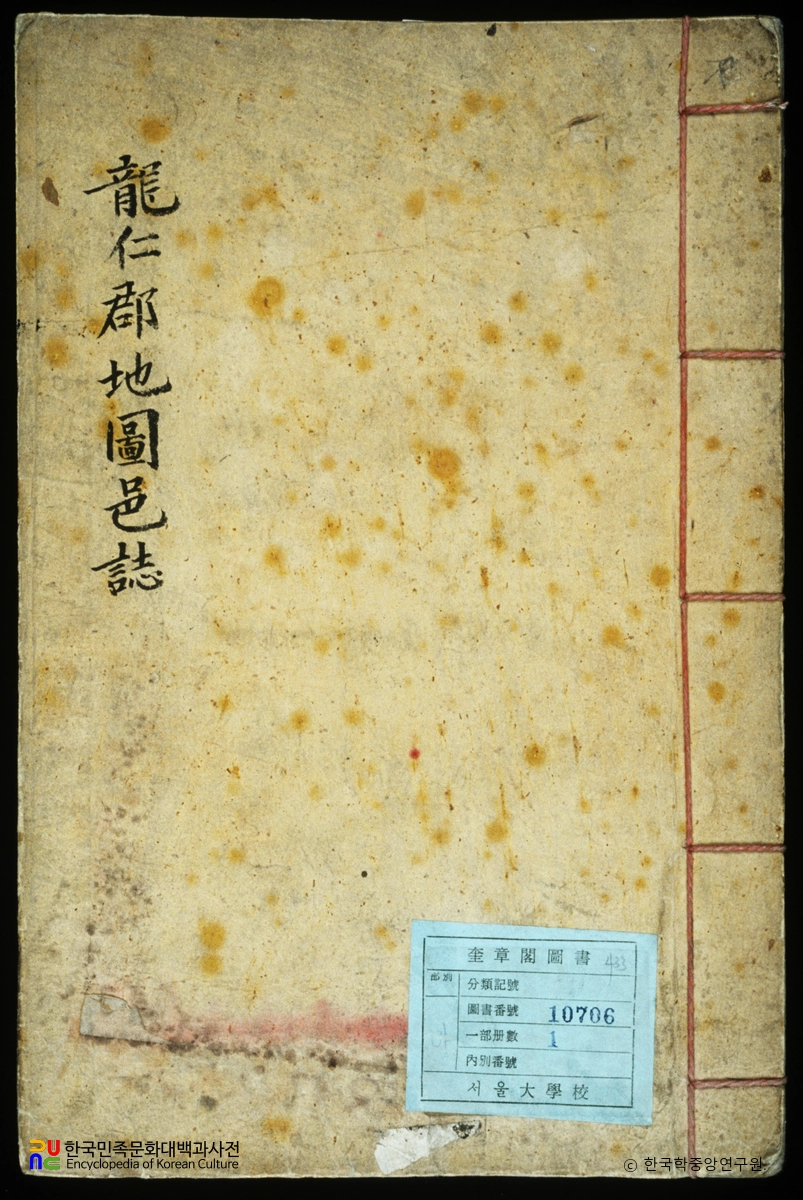 龍仁郡地圖邑誌
奎章閣圖書
433
部別
分類記號
圖書番號 10706
一部册數 1
內別番號
서울大學校
한국민족문화대백과사전
Encyclopedia of Korean Culture
© 한국학중앙연구원